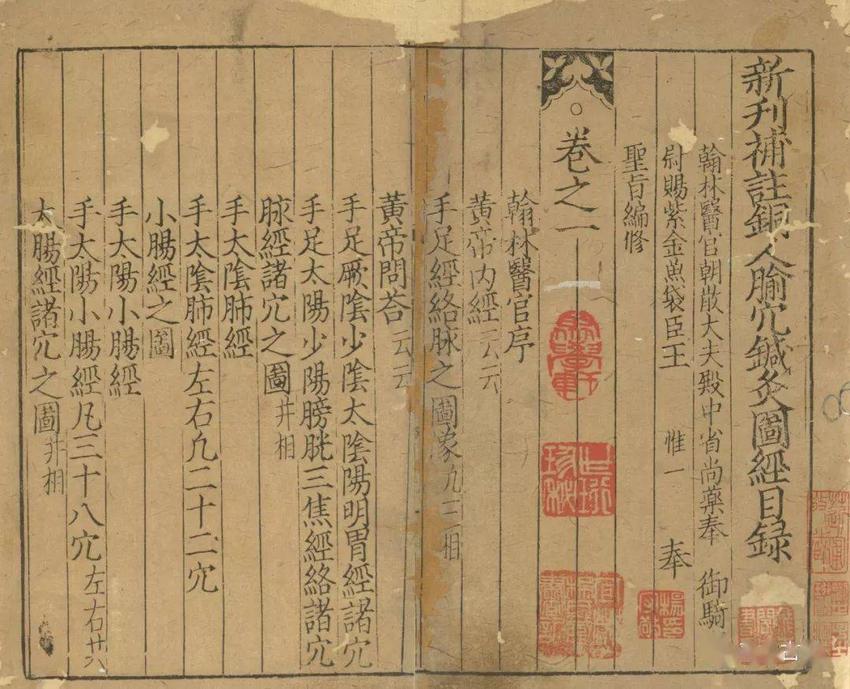 新刋補註銅人腧穴鍼灸圖經目録
翰林醫官朝散大夫殿中省尚藥奉御騎
尉賜紫金魚袋臣王惟一奉
聖旨編修
卷之一
翰林醫官序
黄帝内經云云
手足經絡脉之圖像凡三相
黄帝問荅云云
手足厥陰少陰太陰陽明胃經諸穴
手足太陽少陽膀胱三焦經絡諸穴
脉經諸穴之圖并相
手太陰肺經
手太陰肺經左右凢二十二穴
小腸經之圖
手太陽小腸經
手太陽小腸經凡三十八穴左右廿六
太腸經諸穴之圖并相